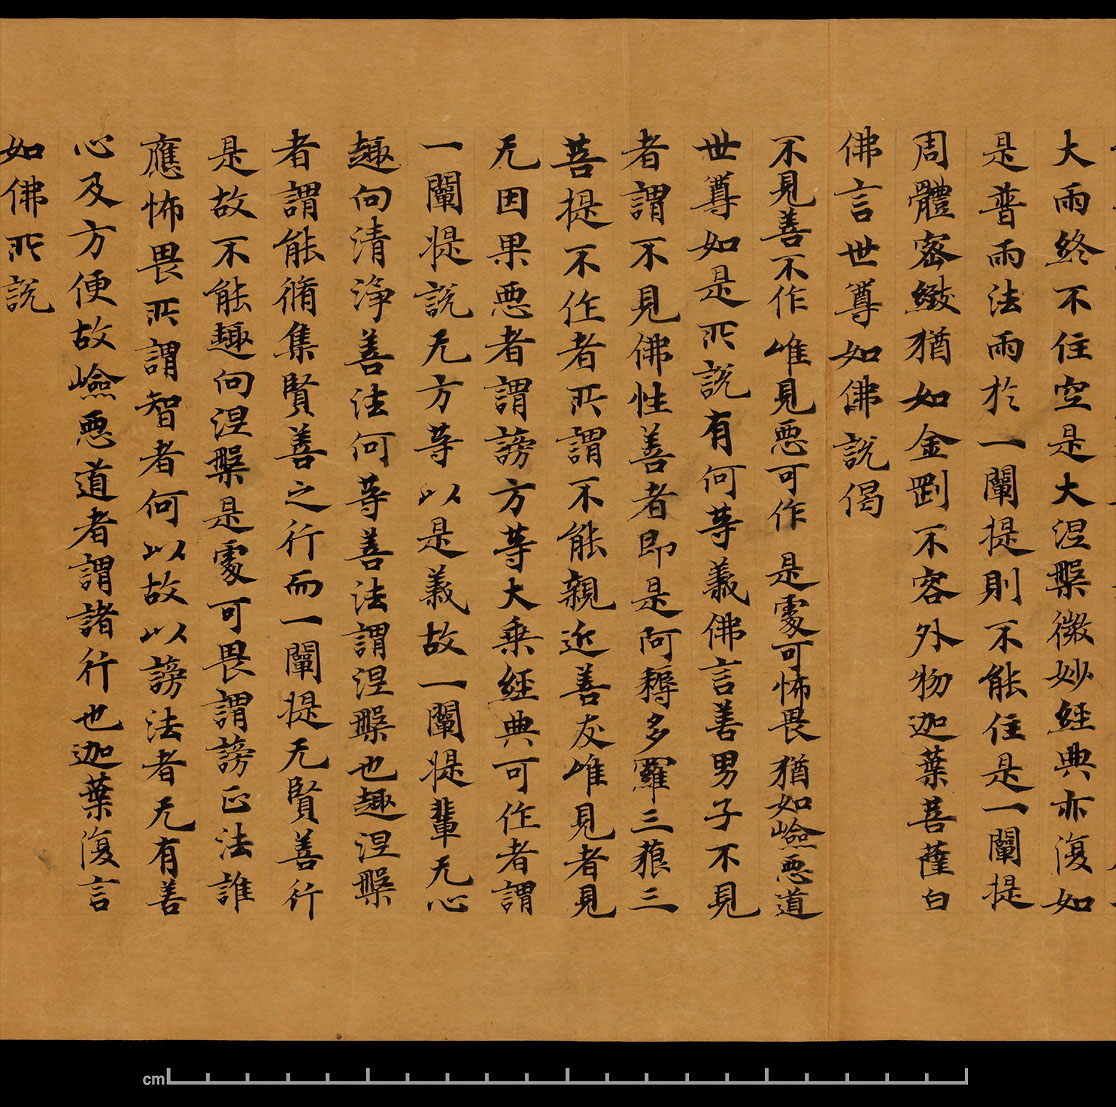 大雨終不住空是大涅槃微妙經典亦復如
是普雨法雨於一闡提則不能住是一闡提
周體密緻猶如金剛不容外物迦葉菩薩白
佛言世尊如佛說偈
不見善不作 唯見惡可作 是處可怖畏 猶如嶮惡道
世尊如是所說有何等義佛言善男子不見
者謂不見佛性善者即是阿耨多羅三藐三
菩提不作者所謂不能親近善友唯見者見
无因果惡者謂謗方等大乘經典可作者謂
一闡提說无方等以是義故一闡提輩无心
趣向清淨善法何等善法謂涅槃也趣涅槃
者謂能脩集賢善之行而一闡提无賢善行
是故不能趣向涅槃是處可畏謂謗正法誰
應怖畏所謂智者何以故以謗法者无有善
心及方便故嶮惡道者謂諸行也迦葉復言
如佛所說
cm